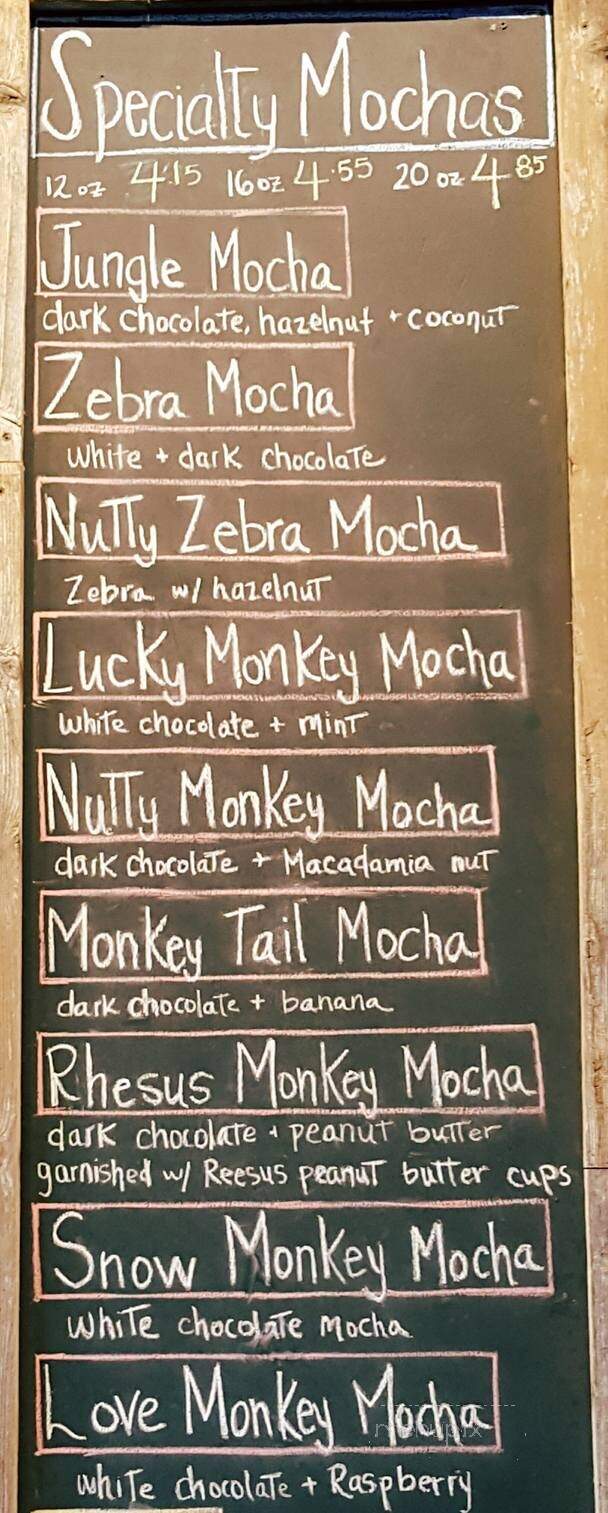 Specialty Mochas
12 oz 4.15 16 oz 4.55 20 oz 4.85
Jungle Mocha
dark chocolate, hazelnut + coconut
Zebra Mocha
white + dark chocolate
Nutty Zebra Mocha
Zebra w/ hazelnut
Lucky Monkey Mocha
white chocolate + mint
Nutty Monkey Mocha
dark chocolate + Macadamia nut
Monkey Tail Mocha
dark chocolate + banana
Rhesus Monkey Mocha
dark chocolate + peanut butter
garnished w/ Reesus peanut butter cups
Snow Monkey Mocha
white chocolate mocha
Love Monkey Mocha
menupix
white chocolate + Raspberry